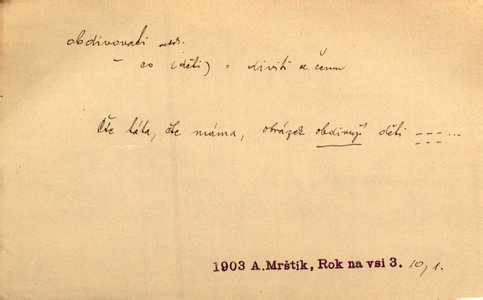 obdivovati ned.
~ co (děti) = diviti se čemu
Čte táta, čte máma, obrázek obdivují děti ---...
1903 A. Mrštík, Rok na vsi 3. 10, 1.